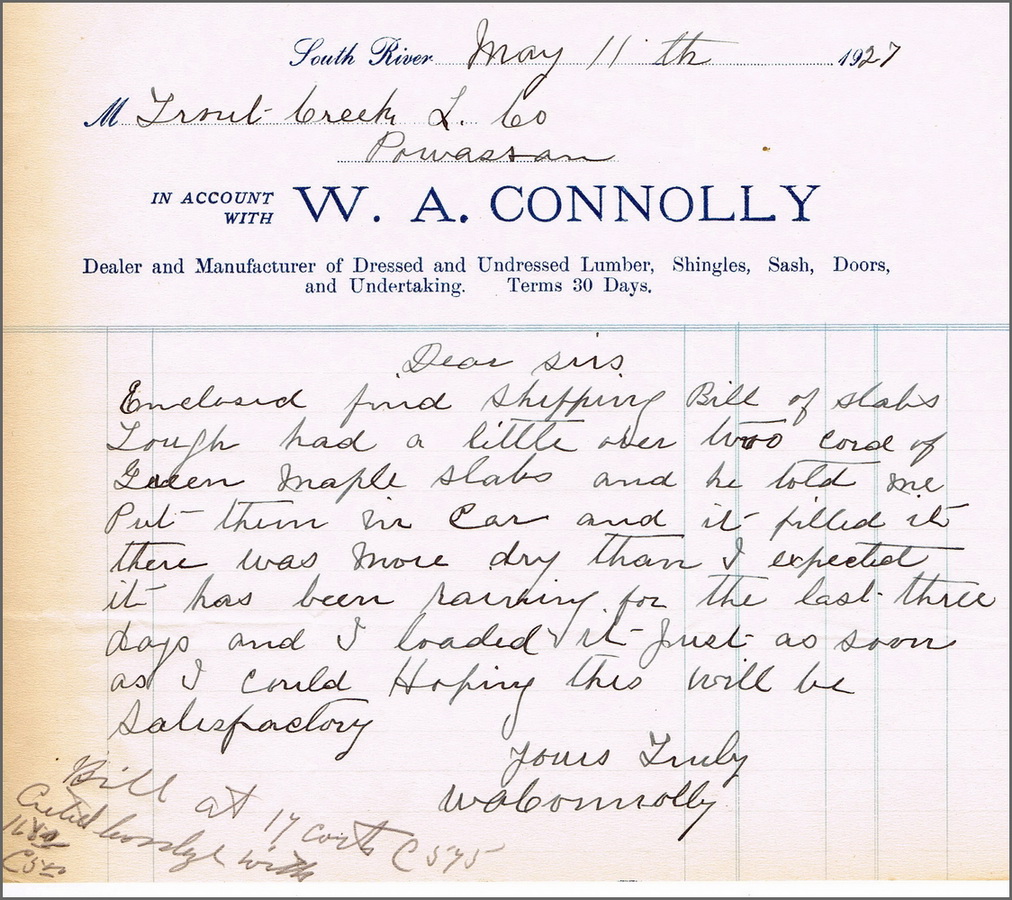 South River May 11th 1927
M Trout Creek L. Co
Powassan
IN ACCOUNT
WITH
W. A. CONNOLLY
Dealer and Manufacturer of Dressed and Undressed Lumber, Shingles, Sash, Doors,
and Undertaking. Terms 30 Days.
Dear sirs
Enclosed find shipping Bill of slabs
Lough had a little over two cord of
Green maple slabs and he told me
Put them in Car and it filled it
there was more dry than I expected
it has been raining for the last three
days and I loaded it Just as soon
as I could Hoping this will be
Satisfactory
Yours Truly
WAConnolly
Bill at 17 cords C 575
with